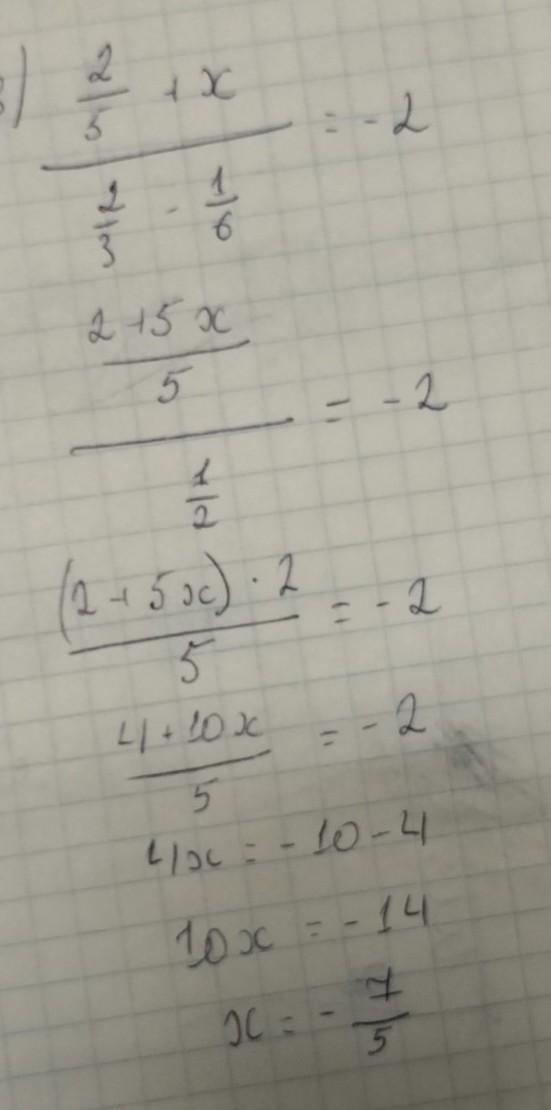 ) (2/5 + x)/(2/3 - 1/6) = -2
((2+5x)/5)/(1/2) = -2
((2+5x)·2)/5 = -2
(4+10x)/5 = -2
4x = -10-4
10x = -14
x = -7/5